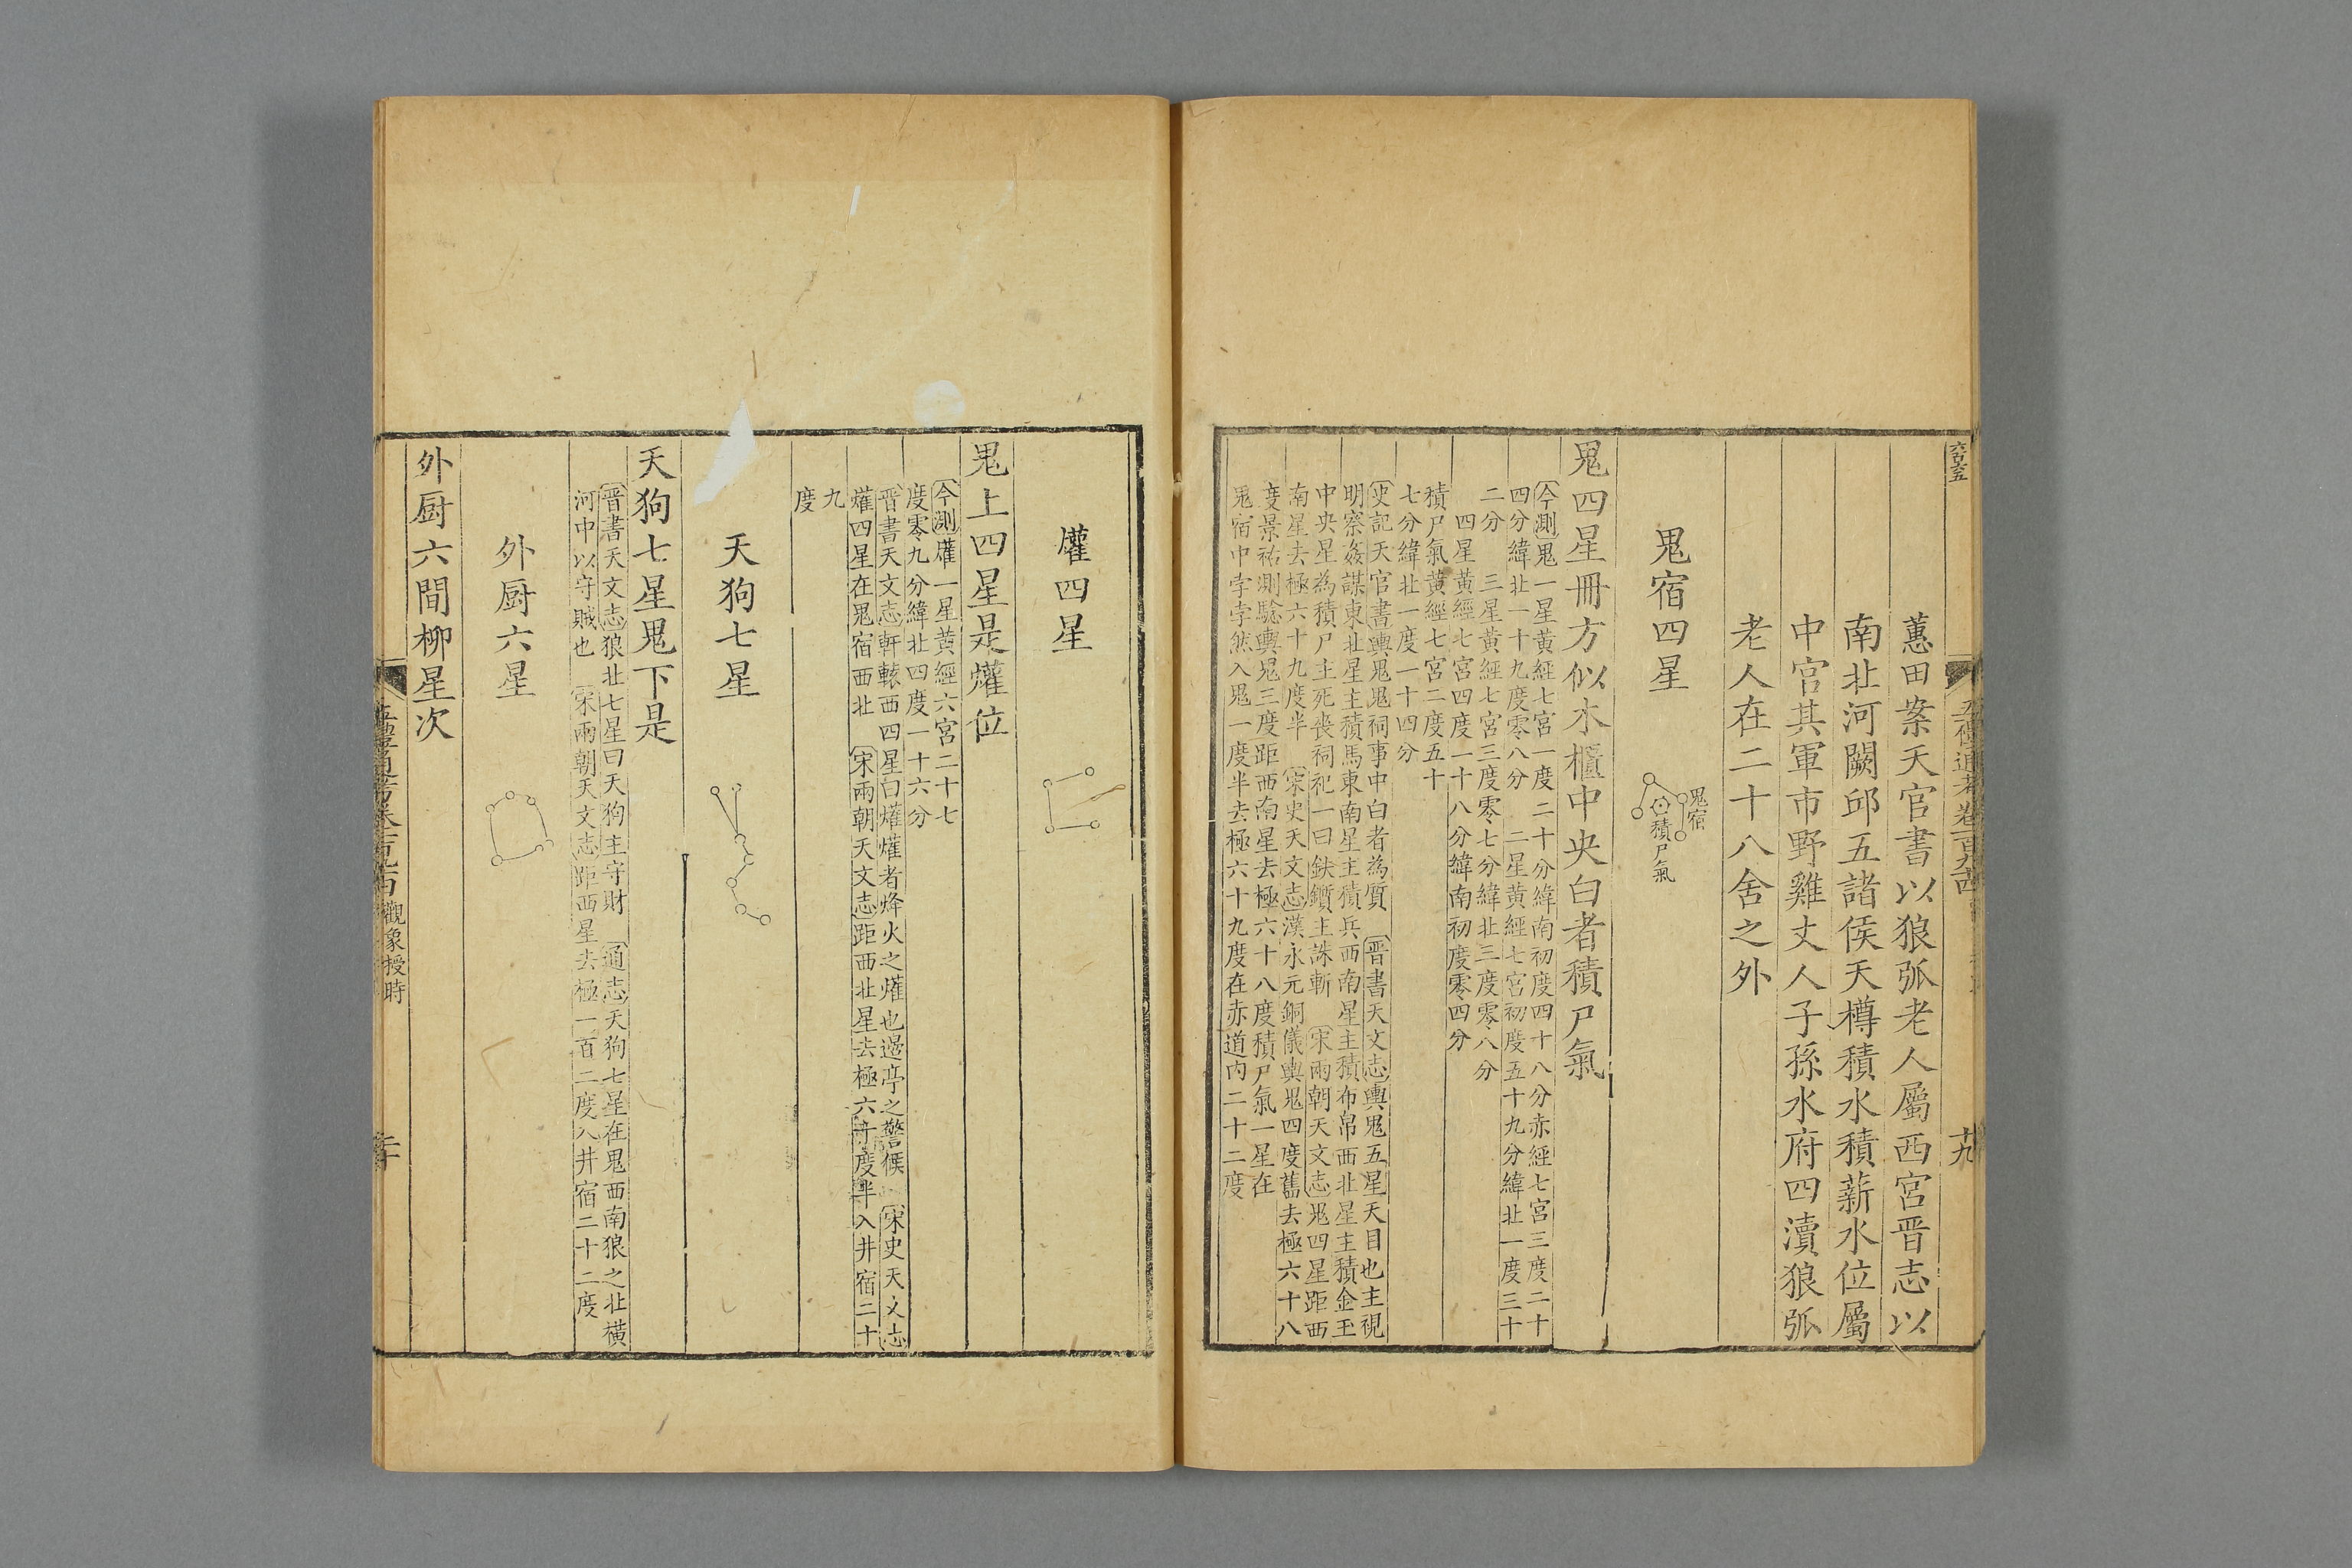 蕙田案天官書以狼弧老人屬西宮晋志以
南北河闕邱五諸侯天樽積水積薪水位屬
中宮其軍市野雞丈人子孫水府四瀆狼弧
老人在二十八舍之外
鬼宿四星
鬼宿
積尸氣
鬼四星冊方似木櫃中央白者積尸氣
今測鬼一星黃經七宮一度二十分緯南初度四十八分赤經七宮三度二十
四分緯北一十九度零八分　二星黃經七宮初度五十九分緯北一度三十
二分　三星黃經七宮三度零七分緯北三度零八分
四星黃經七宮四度一十八分緯南初度零四分
積尸氣黃經七宮二度五十
七分緯北一度一十四分
史記天官書輿鬼鬼祠事中白者為質　晋書天文志輿鬼五星天目也主視
明察姦謀東北星主積馬東南星主積兵西南星主積布帛西北星主積金玉
中央星為積尸主死喪祠祀一曰鈇鑕主誅斬　宋兩朝天文志鬼四星距西
南星去極六十九度半　宋史天文志漢永元銅儀輿鬼四度舊去極六十八
度景祐測驗輿鬼三度距西南星去極六十八度積尸氣一星在
鬼宿中孛孛然入鬼一度半去極六十九度在赤道内二十二度
五禮通考卷一百九十四
十九
爟四星
鬼上四星是爟位
今測爟一星黃經六宮二十七
度零九分緯北四度一十六分
晋書天文志軒轅西四星曰爟爟者烽火之爟也邊亭之警候　宋史天文志
爟四星在鬼宿西北　宋兩朝天文志距西北星去極六十度半入井宿二十
九
度
天狗七星
天狗七星鬼下是
晋書天文志狼北七星曰天狗主守財　通志天狗七星在鬼西南狼之北橫
河中以守賊也　宋兩朝天文志距西星去極一百二度入井宿二十二度
外厨六星
外厨六間柳星次
觀象授時
二十